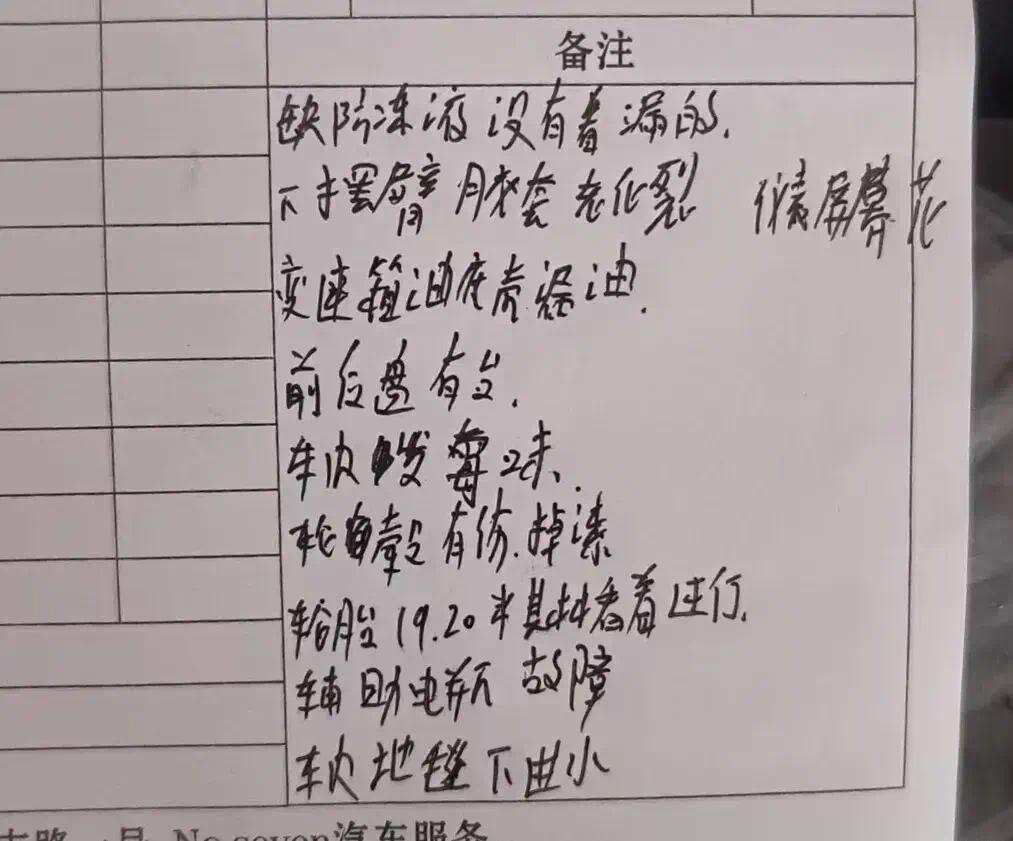 备注
缺防冻液 没有看漏的.
下摆臂 胶套老化裂 仪表屏幕花
变速箱油底壳渗油.
前后盘有台.
车内发霉味.
轮毂有伤.掉漆
轮胎19.20年 看着还行.
辅助电瓶 故障
车内地毯下
No seven汽车服务